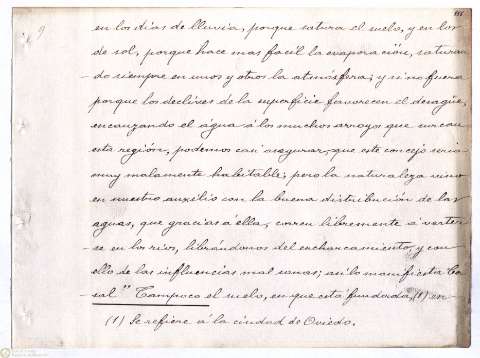 9
en los días de lluvia, porque satura el suelo, y en los
de sol, porque hace mas facil la evaporación, saturan-
do siempre en unos y otros la atmósfera; y si no fuera
porque los declives de la superficie favorecen el desagüe,
encauzando el água á los muchos arroyos que surcan
esta región, podemos casi asegurar, que este concejo seria
muy malamente habitable; pero la naturaleza vino
en nuestro auxilio con la buena distribución de las
aguas, que gracias á ella, corren libremente á verter-
se en los rios, librándonos del encharcamiento, y con
ello de las influencias mal sanas; asi lo manifiesta Ca-
sal " Tampoco el suelo, en que está fundada, (1) en-
(1) Se refiere á la ciudad de Oviedo.